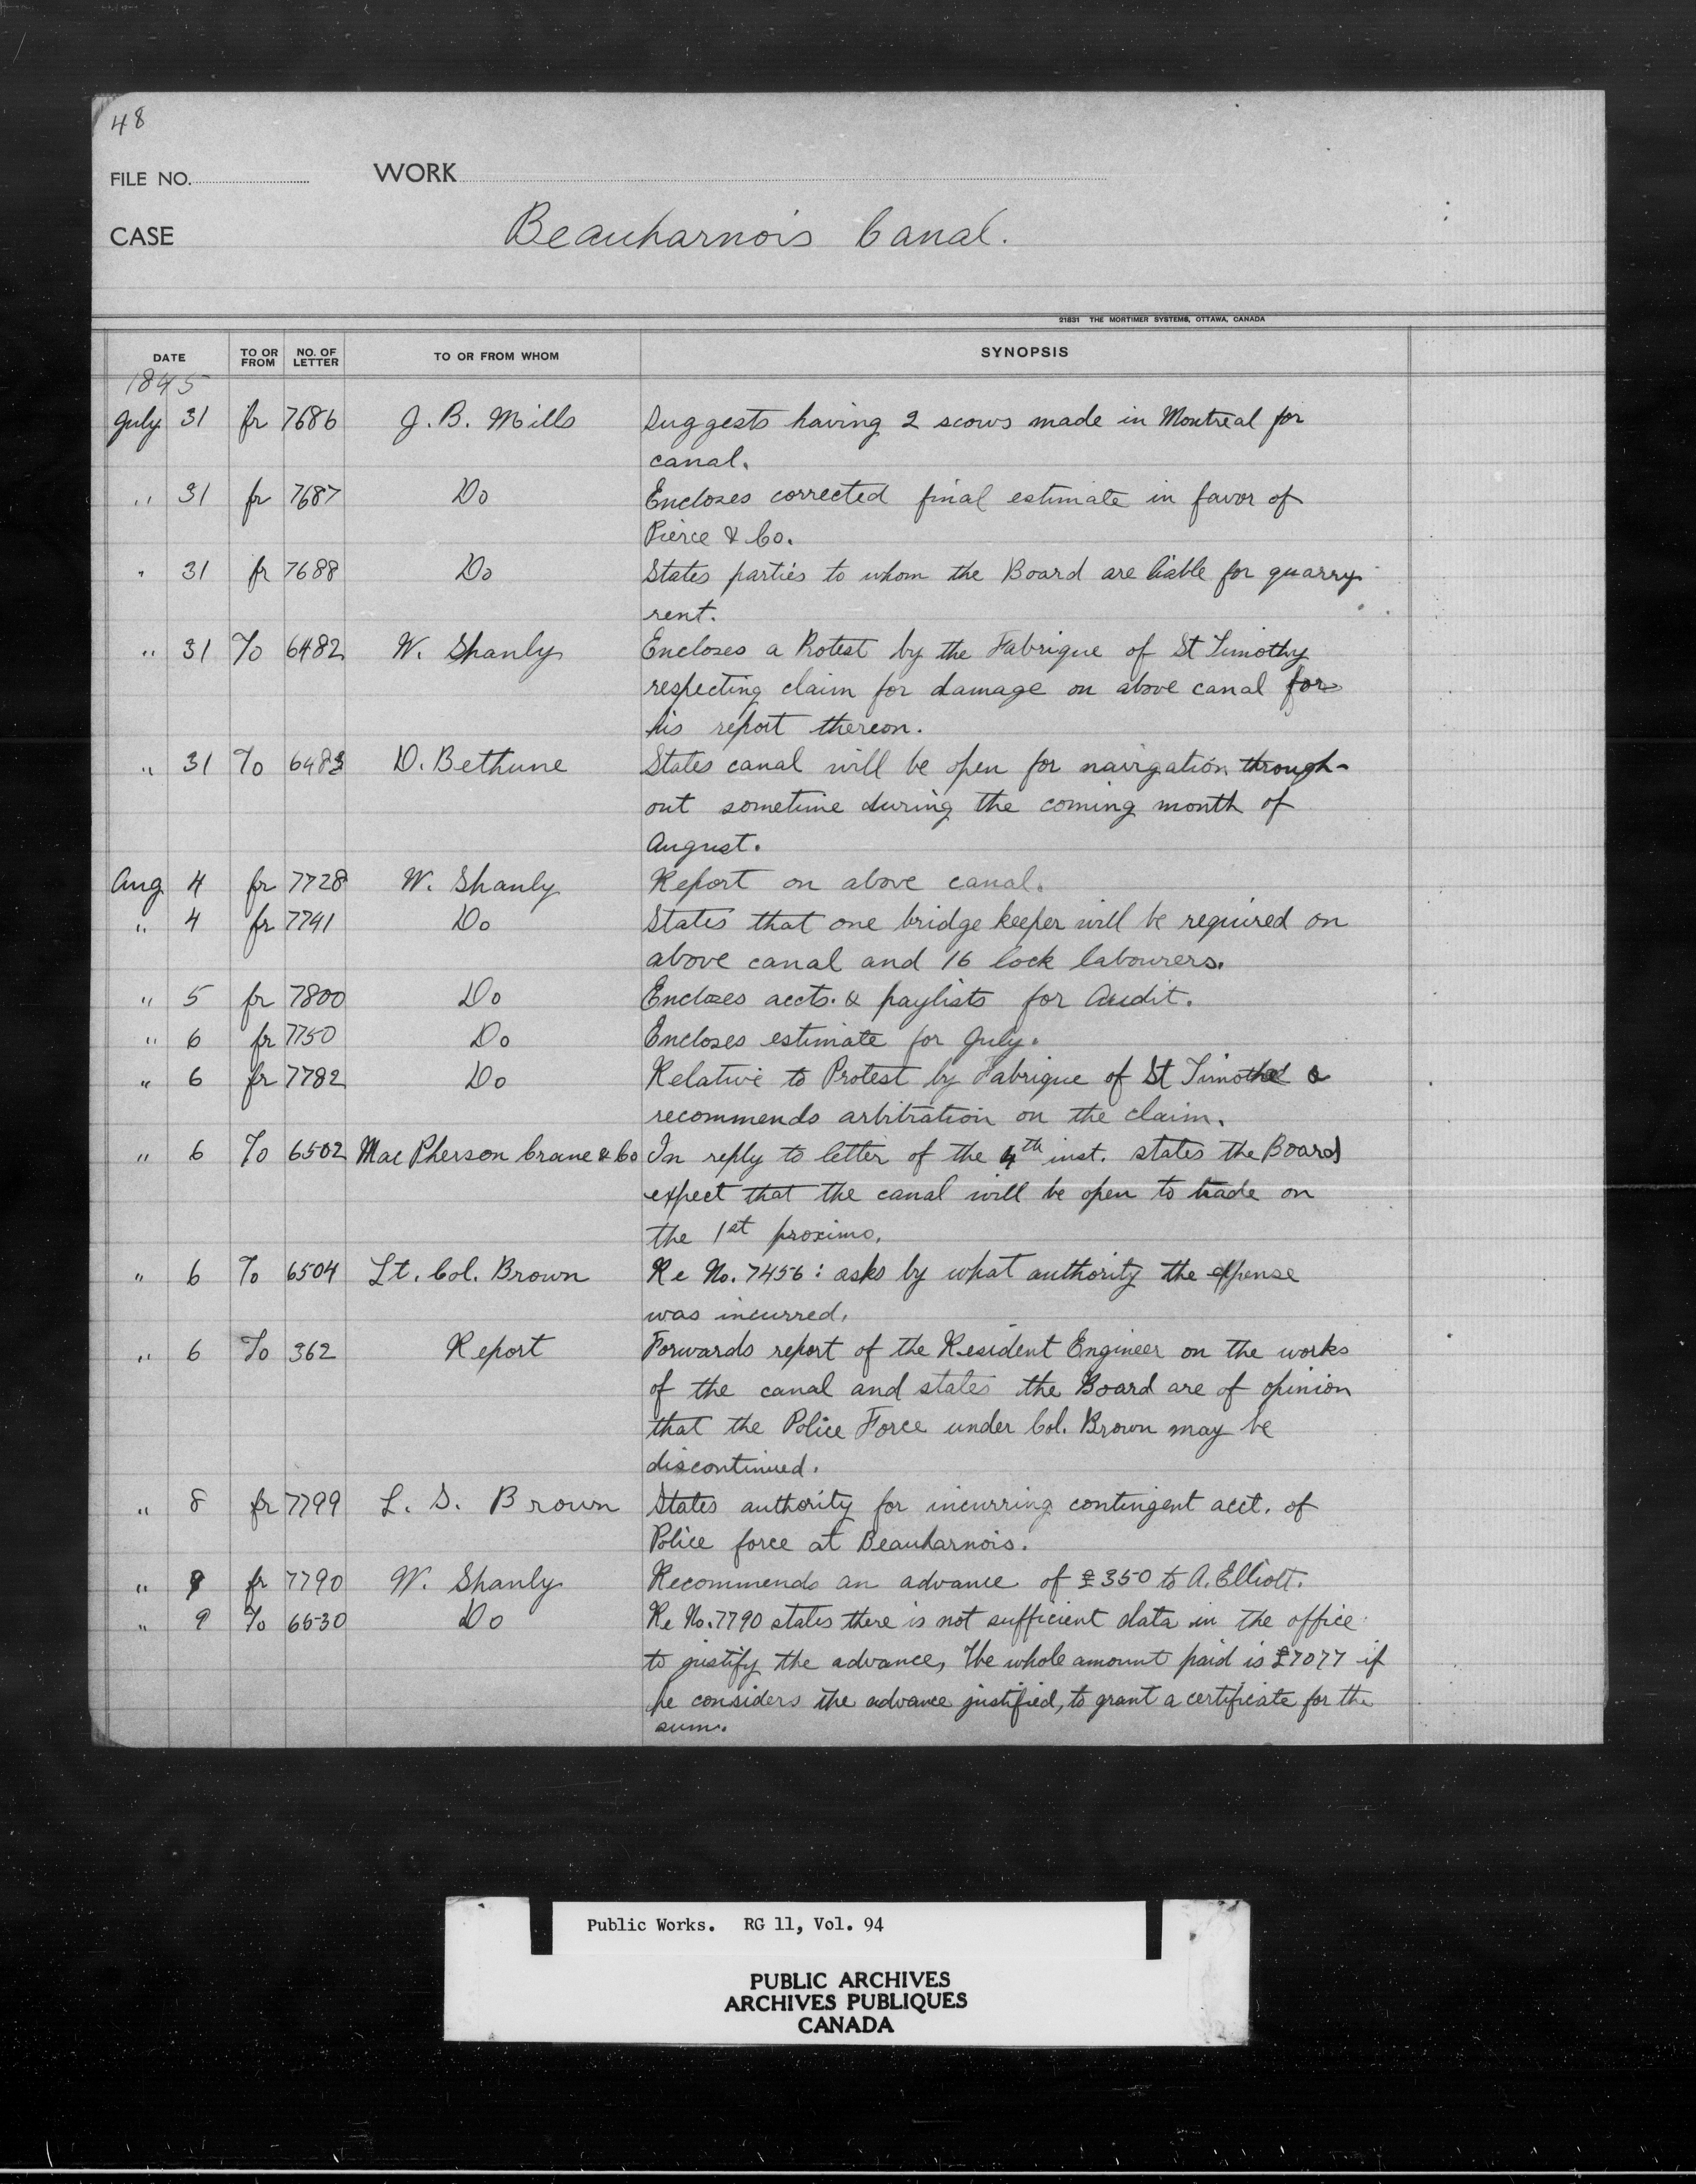 48
FILE NO. WORK
CASE Beauharnois Canal.
21831 THE MORTIMER SYSTEMS, OTTAWA, CANADA
DATE TO OR FROM NO. OF LETTER TO OR FROM WHOM SYNOPSIS
1845
July 31 fr 7686 J. B. Mills Suggests having 2 scows made in Montreal for
canal.
" 31 fr 7687 Do Encloses corrected final estimate in favor of
Pierce & Co.
" 31 fr 7688 Do States parties to whom the Board are liable for quarry
rent.
" 31 To 6482 W. Shanly Encloses a Protest by the Fabrique of St Timothy
respecting claim for damage on above canal for
his report thereon.
" 31 To 6483 D. Bethune States canal will be open for navigation through-
out sometime during the coming month of
August.
Aug 4 fr 7728 W. Shanly Report on above canal.
" 4 fr 7741 Do States that one bridge keeper will be required on
above canal and 16 lock labourers.
" 5 fr 7800 Do Encloses accts. & paylists for Audit.
" 6 fr 7750 Do Encloses estimate for July.
" 6 fr 7782 Do Relative to Protest by Fabrique of St Timothé &
recommends arbitration on the claim.
" 6 To 6502 MacPherson Crane & Co In reply to letter of the 4th inst. states the Board
expect that the canal will be open to trade on
the 1st proximo.
" 6 To 6504 Lt. Col. Brown Re No. 7456: asks by what authority the expense
was incurred.
" 6 To 362 Report Forwards report of the Resident Engineer on the works
of the canal and states the Board are of opinion
that the Police Force under Col. Brown may be
discontinued.
" 8 fr 7799 L. S. Brown States authority for incurring contingent acct. of
Police force at Beauharnois.
" 9 fr 7790 W. Shanly Recommends an advance of £350 to A. Elliott.
" 9 To 6530 Do Re No. 7790 states there is not sufficient data in the office
to justify the advance, The whole amount paid is £7077 if
he considers the advance justified, to grant a certificate for the
sum.
Public Works. RG 11, Vol. 94
PUBLIC ARCHIVES
ARCHIVES PUBLIQUES
CANADA